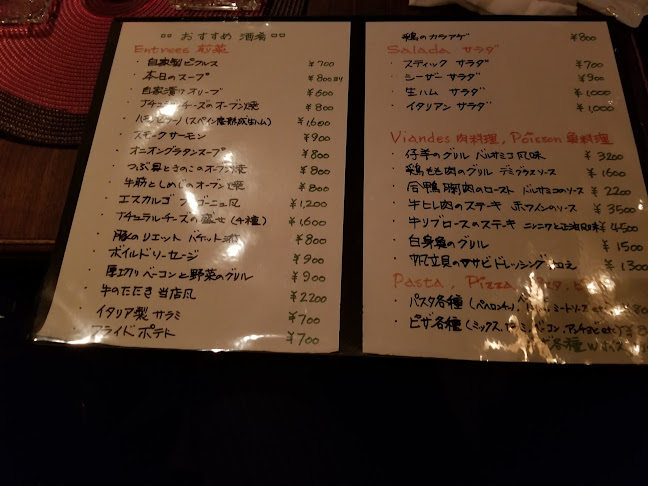 おすすめ 酒肴
Entrees 前菜
・自家製ピクルス ¥700
・本日のスープ ¥800
・自家漬けオリーブ ¥600
・ナチュラルチーズのオーブン焼 ¥800
・ハモンセラーノ(スペイン産熟成生ハム) ¥1,600
・スモークサーモン ¥900
・オニオングラタンスープ ¥800
・つぶ貝ときのこのオーブン焼 ¥800
・牛筋としめじのオーブン焼 ¥800
・エスカルゴ ブルゴーニュ風 ¥1,200
・ナチュラルチーズの盛せ(4種) ¥1,600
・豚のリエット バケット添 ¥800
・ボイルドソーセージ ¥900
・厚切りベーコンと野菜のグリル ¥900
・牛のたたき 当店風 ¥2200
・イタリア製 サラミ ¥700
・フライドポテト ¥700
・鶏のカラアゲ ¥800
Salada サラダ
・スティック サラダ ¥700
・シーザー サラダ ¥900
・生ハム サラダ ¥1,000
・イタリアン サラダ ¥1,000
Viandes 肉料理, Poisson 魚料理
・仔羊のグリル バルサミコ風味 ¥3200
・鶏もも肉のグリル デミグラスソース ¥1600
・合鴨胸肉のロースト バルサミコのソース ¥2200
・牛ヒレ肉のステーキ 赤ワインのソース ¥3500
・牛リブロースのステーキ ニンニクと正油風味 ¥4500
・白身魚のグリル ¥1500
・帆立貝のワサビドレッシング和え ¥1300
Pasta, Pizza,
・パスタ各種(ペペロンチーノ, ミートソースetc)
・ピザ各種(ミックス, ベーコン, アンチョビetc)
各種